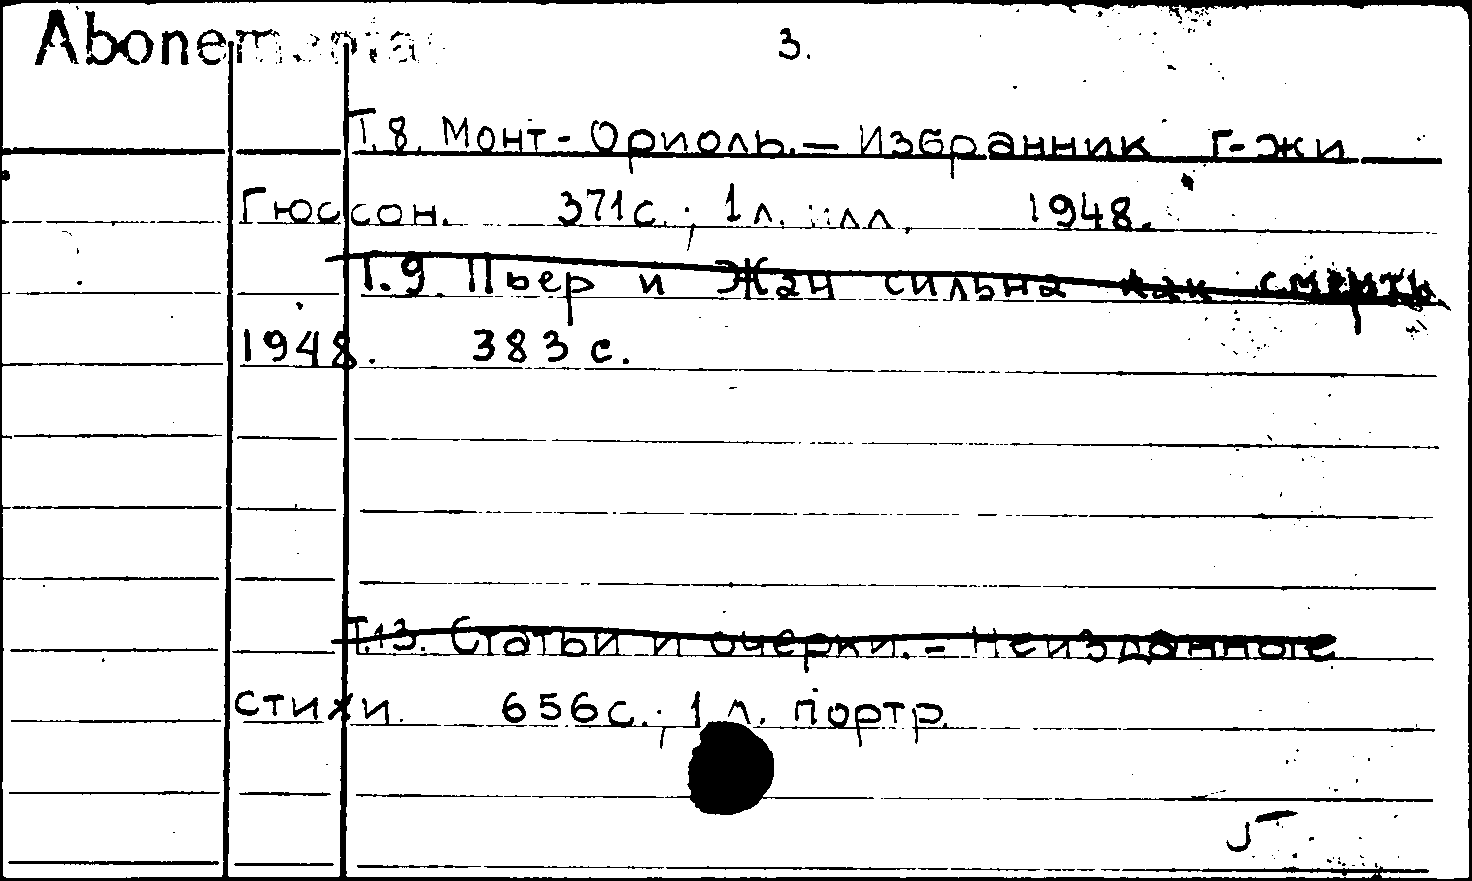 Abonementas
3.
Т.8. Монт-Ориоль.— Избранник г-жи
Гюссон. 371с.; 1л. илл. 1948.
Т.9 Пьер и Жан сильна как смерть
1948. 383 с.
Т.13. Статьи и очерки.- Неизданные
стихи. 656с.; 1 л. портр.